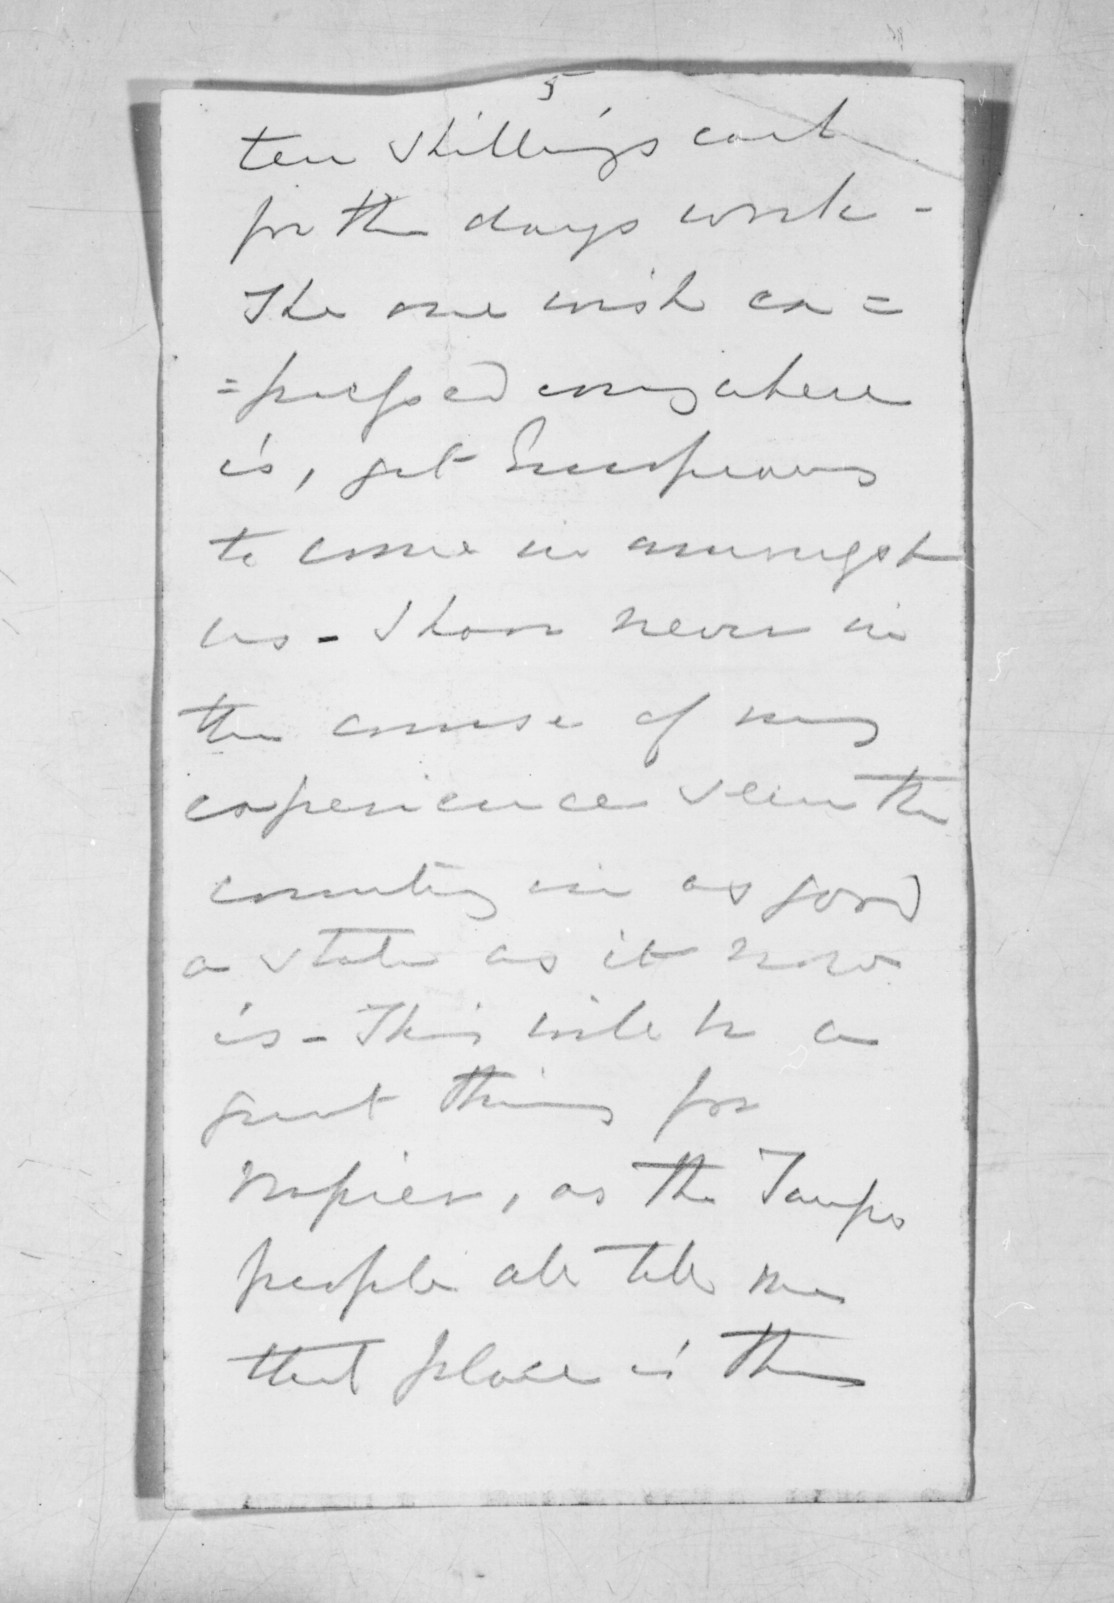 5
ten shillings each
for the days work -
The one wish ex =
= pressed everywhere
is, get Europeans
to come in amongst
us - I have never in
the course of my
experience seen the
country in as good
a state as it now
is - This will be a
great thing for
Napier, as the Taupo
people all tell me
that place is the